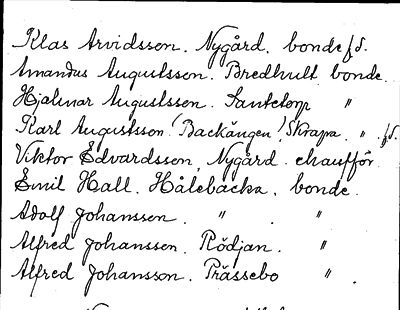 Klas Arvidsson. Nygård. bonde f.d.
Amandus Augustsson. Bredhult bonde.
Hjalmar Augustsson. Santetorp "
Karl Augustsson (Backängen) Skrapa. " f.d.
Viktor Edvardsson, Nygård. chaufför.
Emil Hall. Hålebacka. bonde.
Adolf Johansson. " . "
Alfred Johansson. Rödjan. "
Alfred Johansson. Prässebo " .